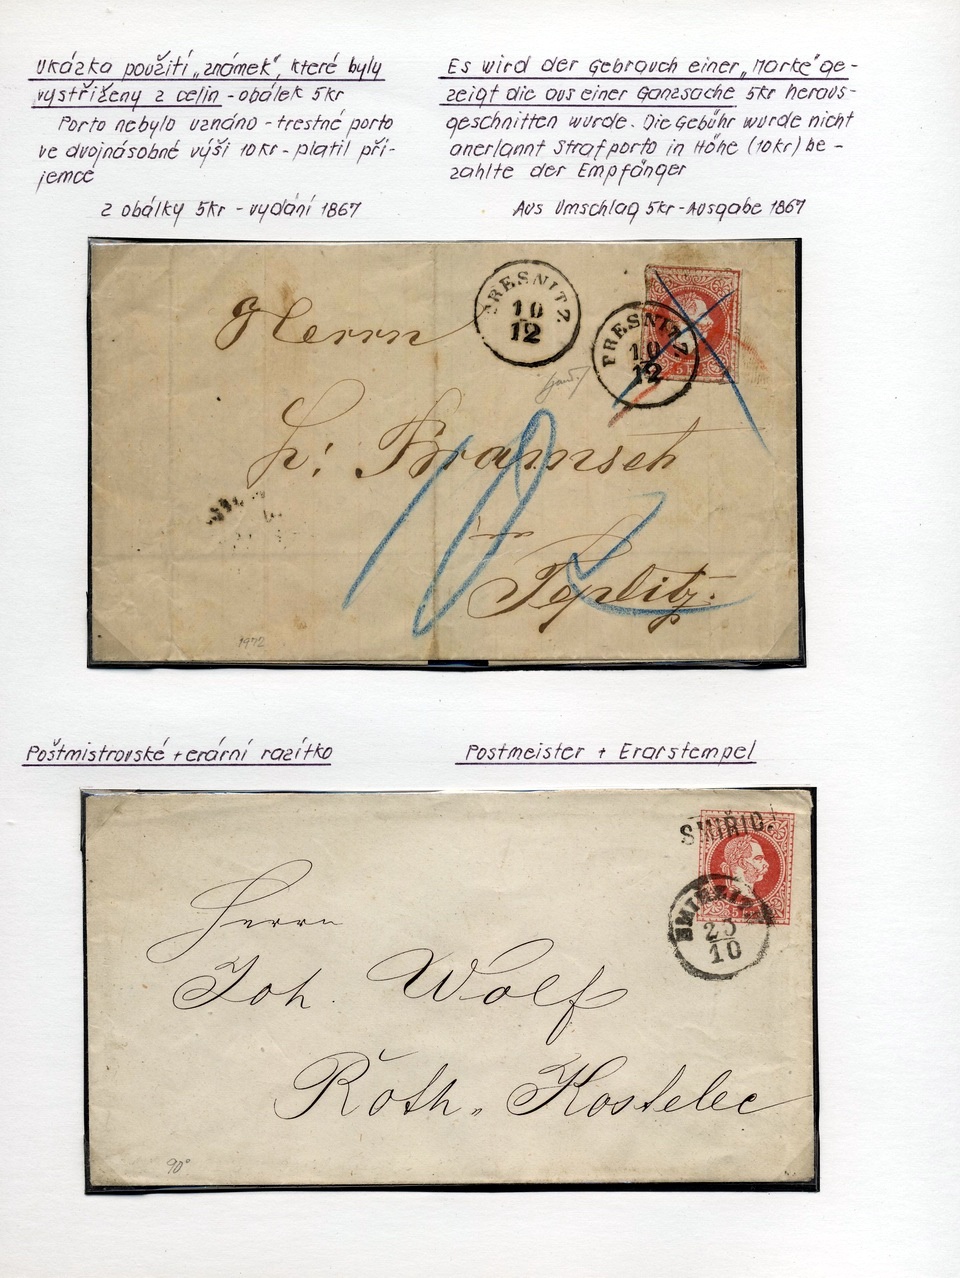 Ukázka použití „známek“, které byly
vystřiženy z celin - obálek 5kr
Porto nebylo uznáno - trestné porto
ve dvojnásobné výši 10kr - platil pří-
jemce
z obálky 5kr - vydání 1867
Es wird der Gebrauch einer „Marke“ ge-
zeigt die aus einer Ganzsache 5kr heraus-
geschnitten wurde. Die Gebühr wurde nicht
anerlannt Strafporto in Höhe (10kr) be-
zahlte der Empfänger
Aus Umschlag 5kr - Ausgabe 1867
PRESNITZ
10
12
PRESNITZ
10
12
5 Kr
Herrn
Bramsch
10
in
Teplitz.
1972
Poštmistrovské + erární razítko
Postmeister + Erarstempel
SMIŘIC
SMIRZITZ
10
Herrn
Joh. Wolf
Roth. Kostelec
90°